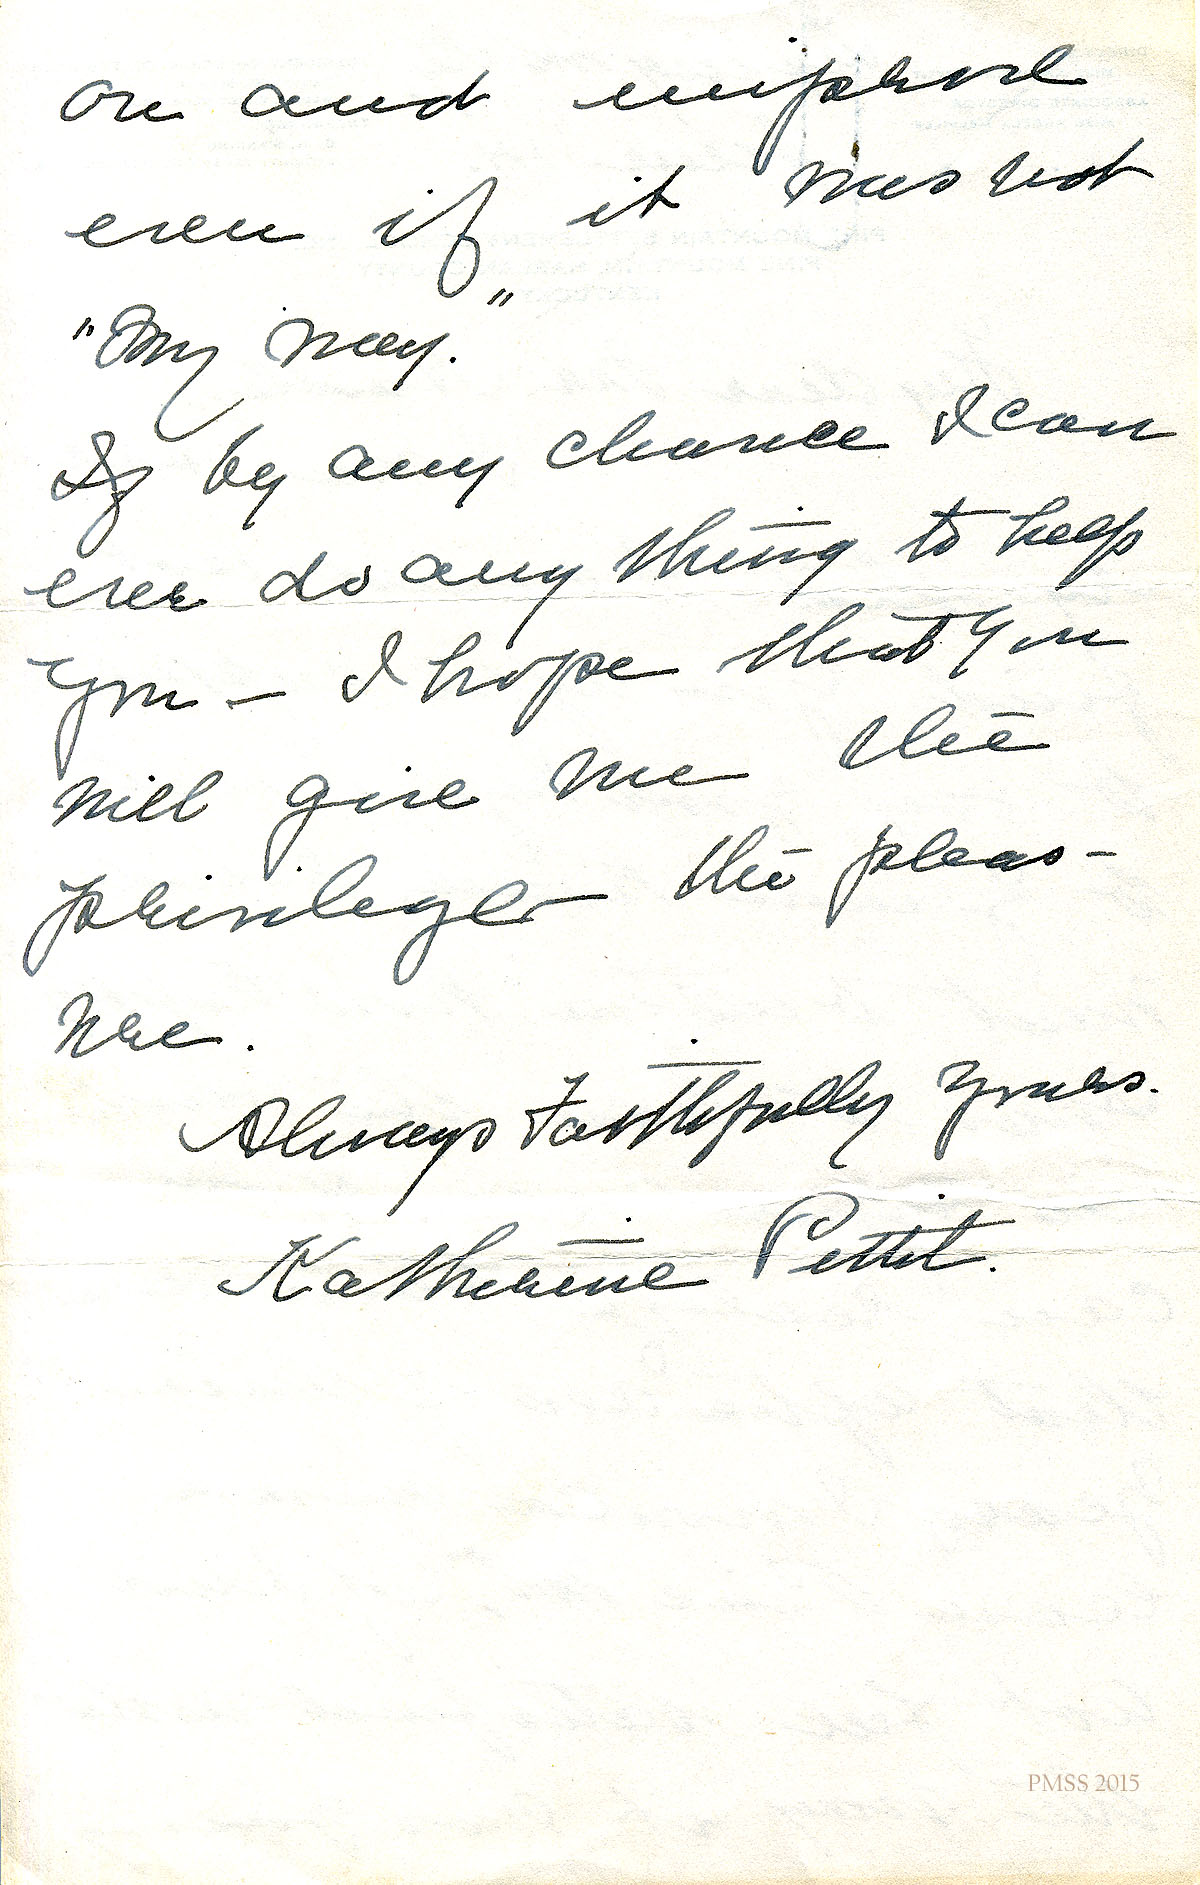 on and improve
even if it was not
"My way."
If by any chance I can
ever do any thing to help
you – I hope that you
will give me the
privilege – the pleas-
ure.
Always Faithfully Yours.
Katherine Pettit.
PMSS 2015